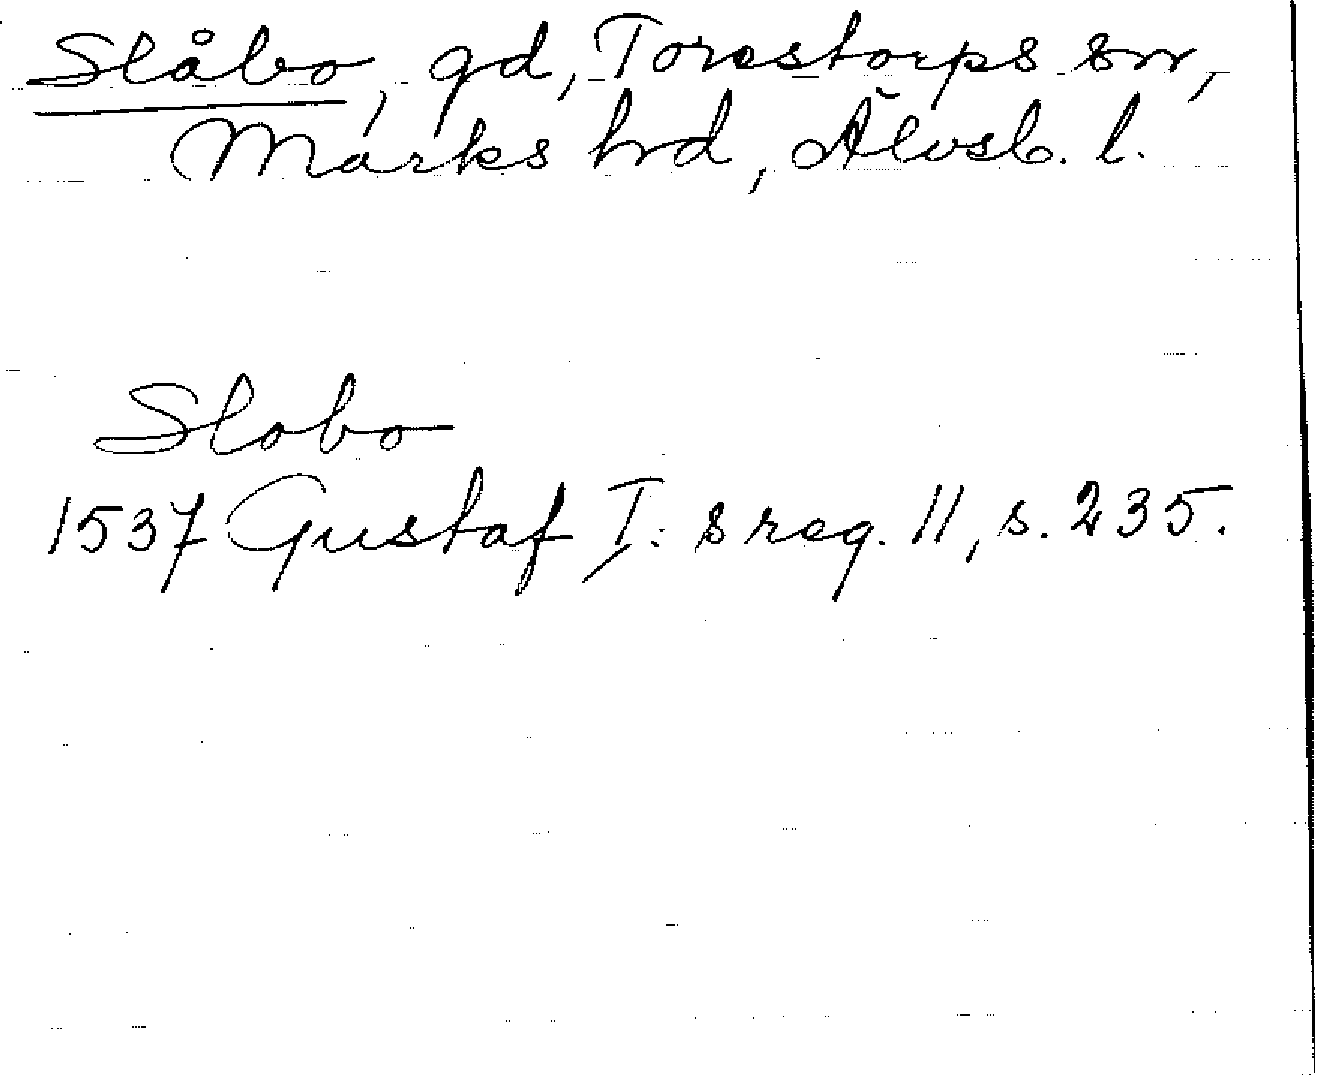 Slåbo, gd, Torestorps sn,
Marks hd, Älvsb. l.
Slobo
1537 Gustaf I: s reg. 11, s. 235.